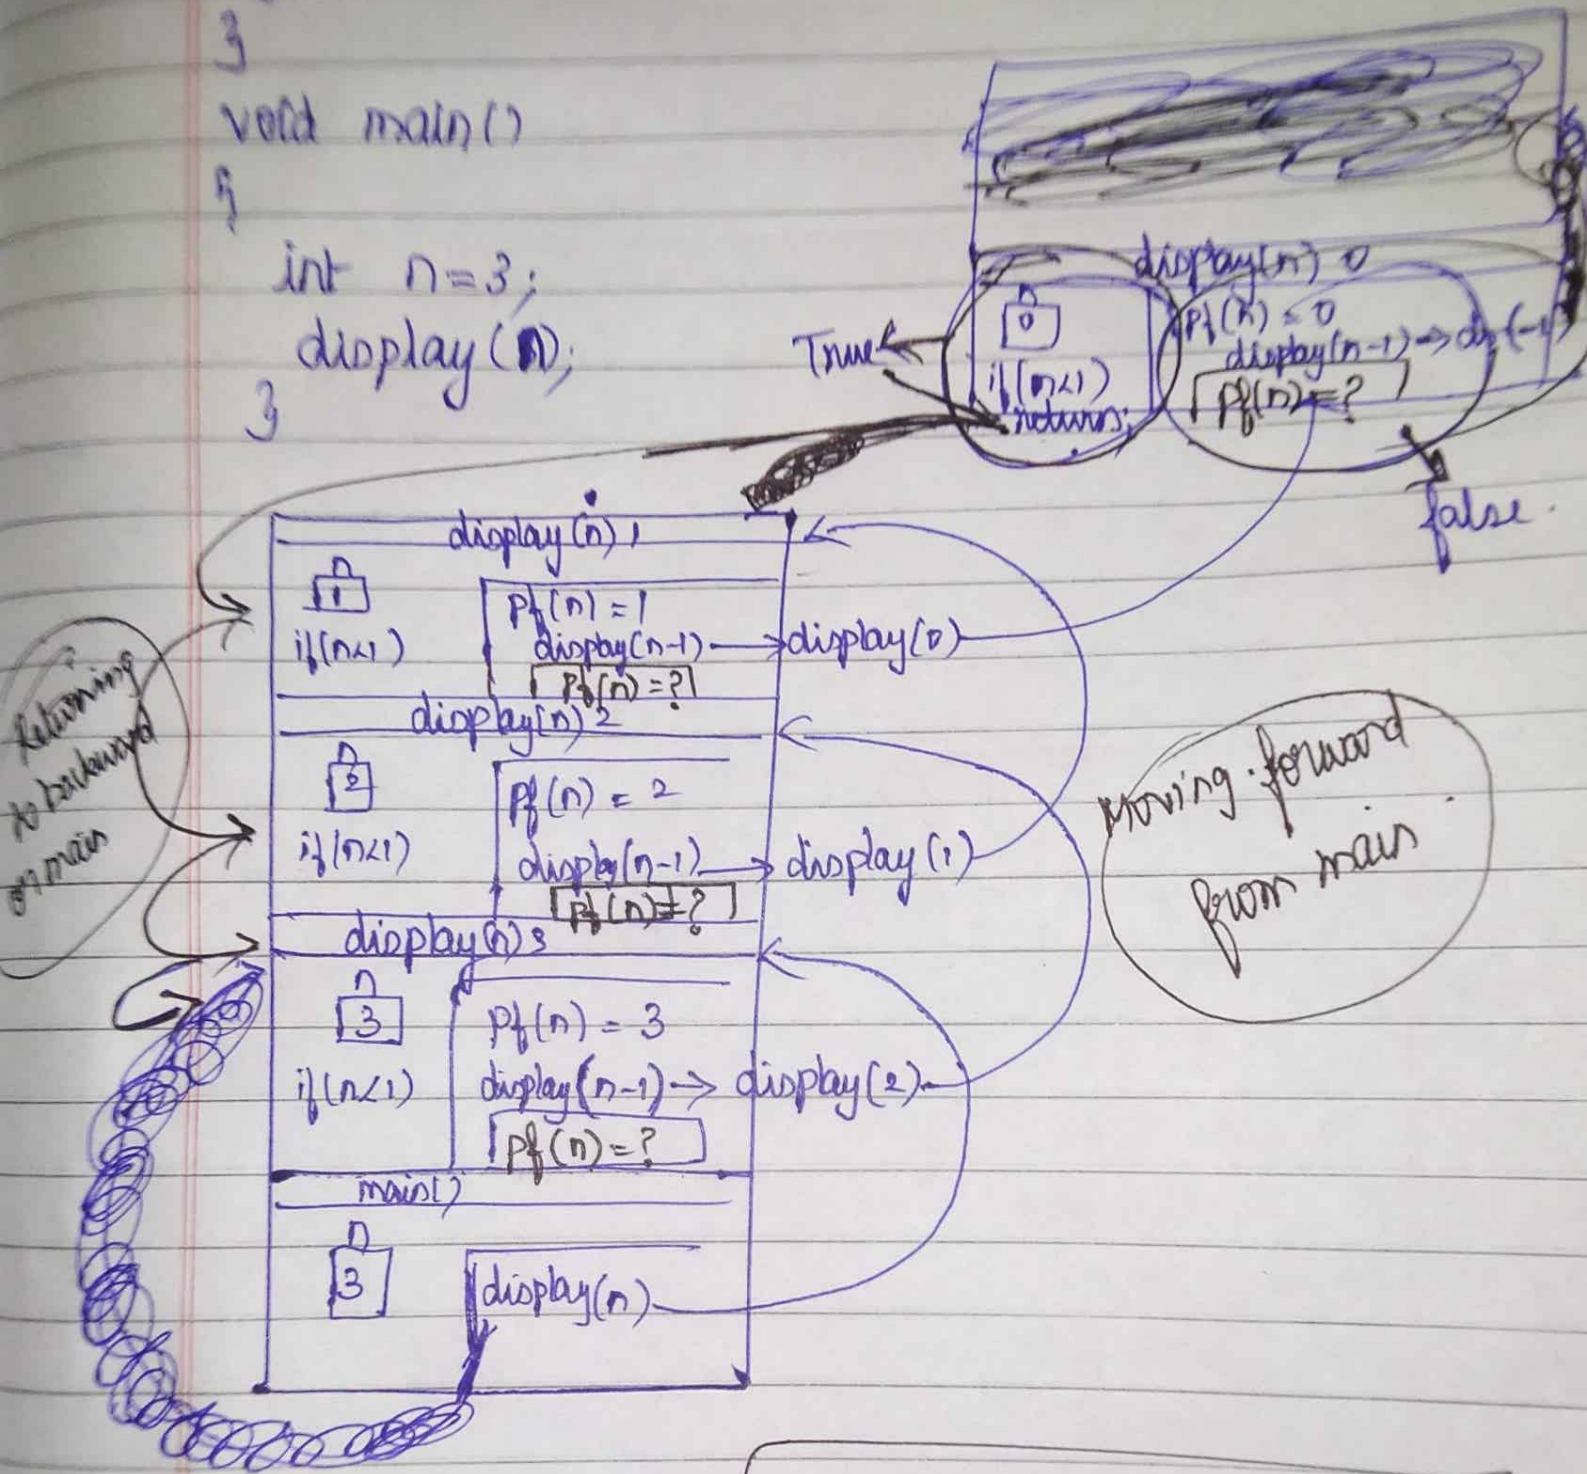 }
void main()
{
int n=3;
display(n);
}
display(n) 0
n
0
if(n<1)
return;
pf(n) = 0
display(n-1) → dis(-1)
pf(n)=?
True
false.
display(n) 1
n
1
if(n<1)
pf(n) = 1
display(n-1) → display(0)
pf(n)=?
display(n) 2
n
2
if(n<1)
pf(n) = 2
display(n-1) → display(1)
pf(n)=?
display(n) 3
n
3
if(n<1)
pf(n) = 3
display(n-1) → display(2)
pf(n)=?
main()
n
3
display(n)
Returning
to backward
on main
Moving forward
from main